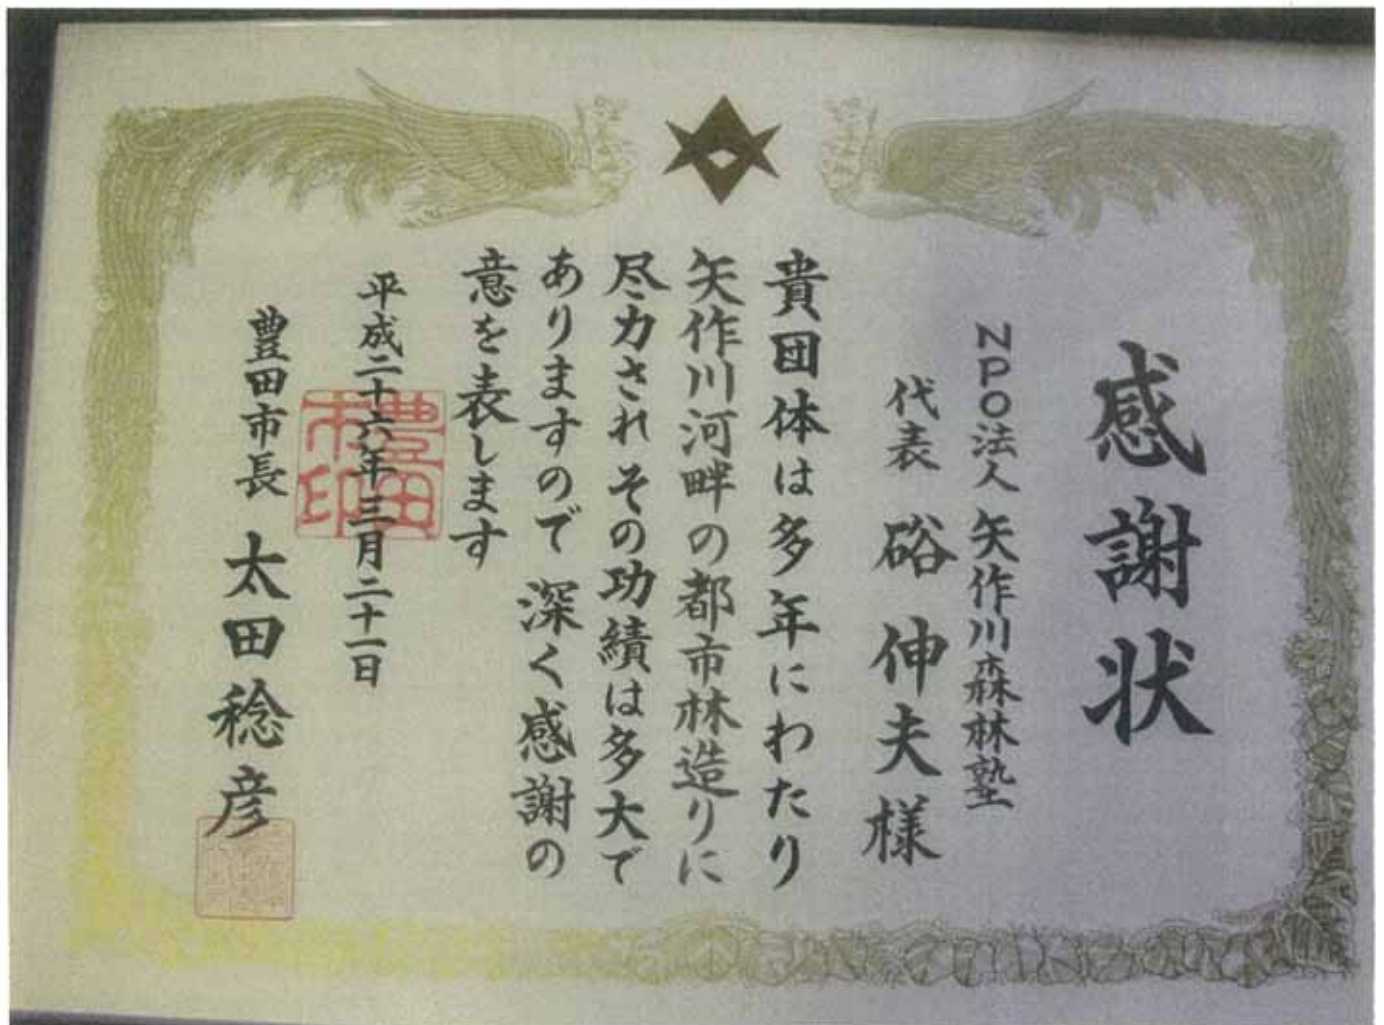 感謝状
NPO法人 矢作川森林塾
代表 硲 伸夫 様
貴団体は多年にわたり
矢作川河畔の都市林造りに
尽力されその功績は多大で
ありますので 深く感謝の
意を表します
平成二十六年三月二十一日
豊田市印
豊田市長 太田稔彦